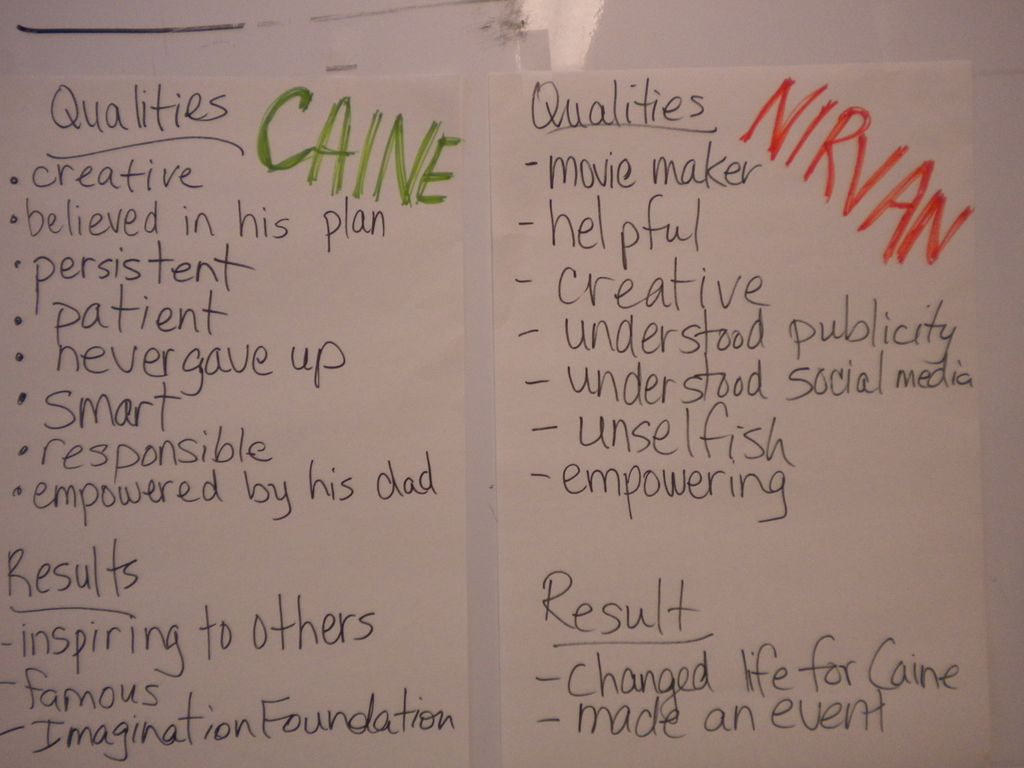 Qualities CAINE
• creative
• believed in his plan
• persistent
• patient
• never gave up
• smart
• responsible
• empowered by his dad
Results
- inspiring to others
- famous
- Imagination Foundation
Qualities NIRVAN
- movie maker
- helpful
- creative
- understood publicity
- understood social media
- unselfish
- empowering
Result
- changed life for Caine
- made an event